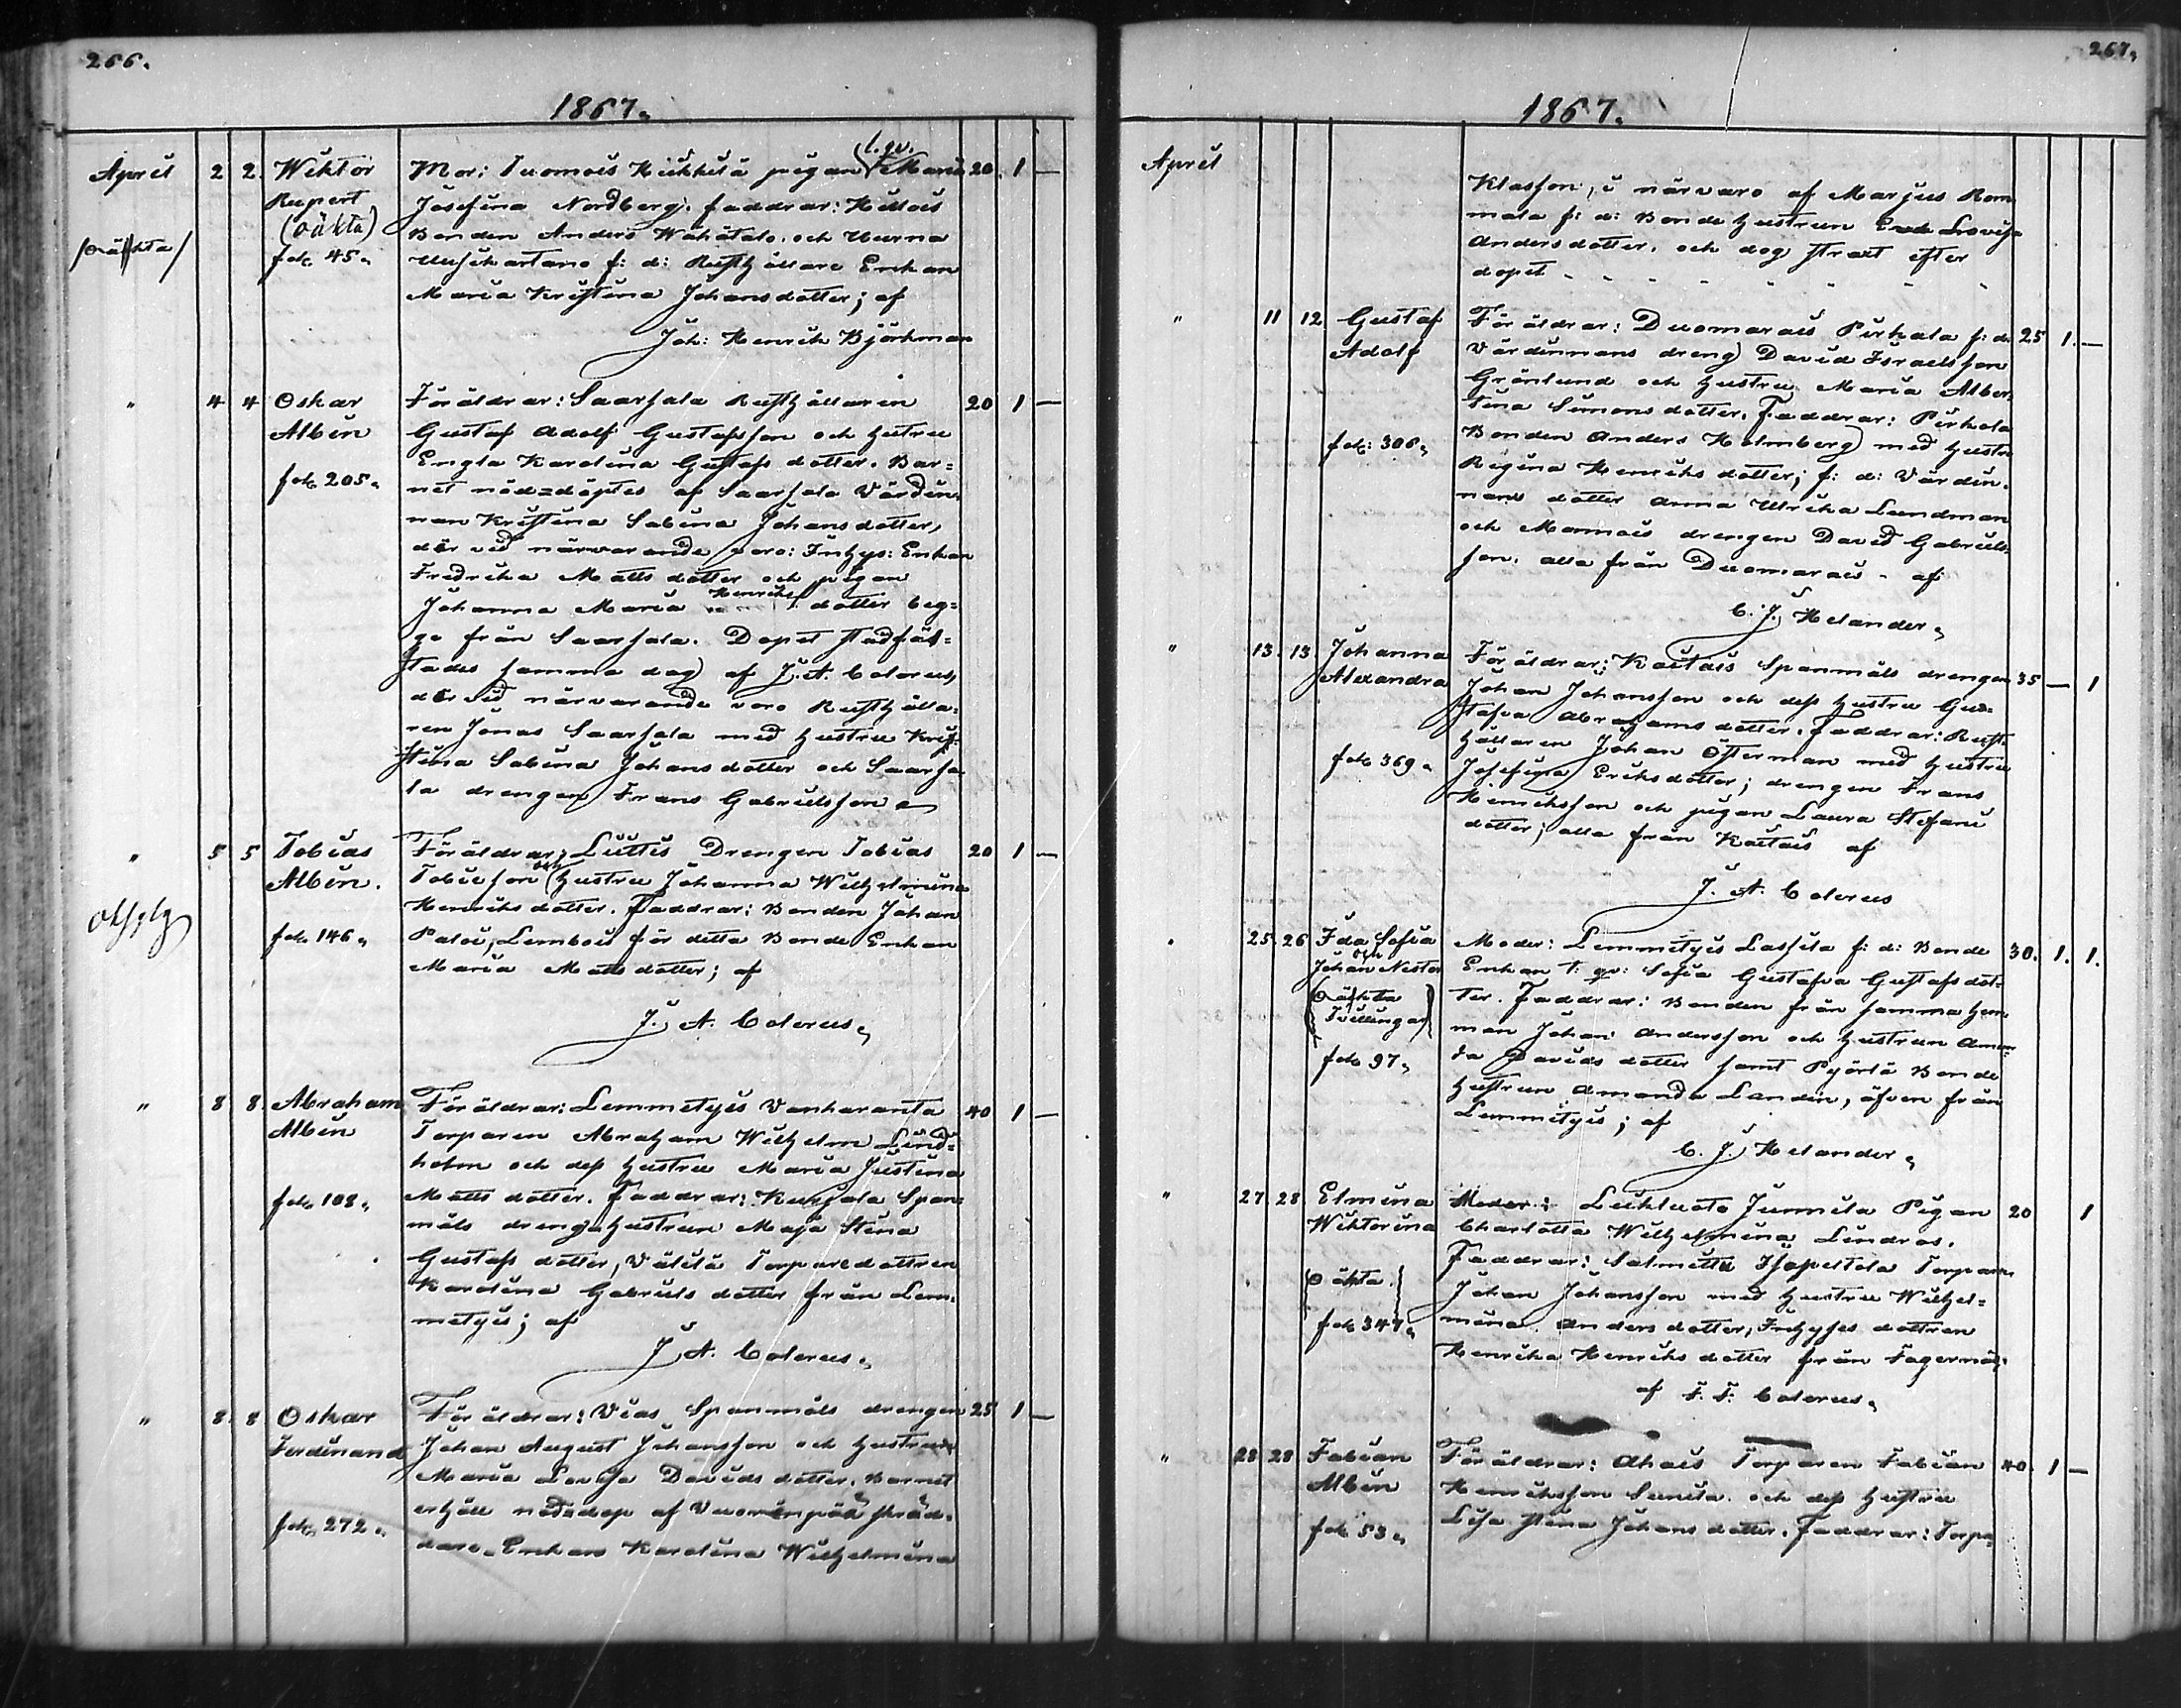 266.
1867.
April 2 2. Wiktor Mor: Tuomois Kiikkilä pigan l. qv. Maria 20. 1 —
Rupert Josefina Nordberg. faddrar: Killois
(oäkta) Bonden Anders Wähätalo. och Uurna
/oäkta/ fol. 45. f: d: Rusthållare Enkan
Maria Kristina Johansdotter; af
Joh: Henrik Björkman
" 4 4 Oskar Föräldrar: Saarsala Rusthållaren 20 1 —
Albin Gustaf Adolf Gustafsson och hustru
Engla Karolina Gustafs dotter. Bar=
fol. 205. net nöd=döptes af Saarsala Värdin=
nan Kristina Sabina Johansdotter,
der vid närvarande voro: Inhys: Enkan
Fredrika Matts dotter och pigan
Johanna Maria Henriks dotter beg=
ge från Saarsala. Dopet stadfäs=
tades samma dag af J. A. Colerus,
der vid närvarande voro Rusthålla=
ren Jonas Saarsala med hustru Kris=
tina Sabina Johans dotter och Saarsa=
la drengen Frans Gabrielsson
" 5 5 Tobias Föräldrar; Liittis Drengen Tobias 20 1 —
Albin. Tobiesson och hustru Johanna Wilhelmina
Henriks dotter. Faddrar: Bonden Johan
fol. 146. Paloi, Lembois för detta Bonde Enkan
Maria Matts dotter; af
J. A. Colerus.
" 8 8. Abraham Föräldrar: Lemmetyis Vanharanta 40 1 —
Albin Torparen Abraham Wilhelm Lind=
holm och dess hustru Maria Justina
fol. 108. Matts dotter. Faddrar: Kurjala Span=
måls drengshustrun Maja Stina
Gustafs dotter, Välilä Torparedottren
Karolina Gabriels dotter från Lem=
metyis; af
J. A. Colerus.
" 8. 8 Oskar Föräldrar: Vias Spanmåls drengen 25 1 —
Ferdinand Johan August Johansson och hustrun
Maria Lovisa Davids dotter. Barnet
erhöll nöd=dop af Vuorenpää skräd=
fol. 272. dare=Enkan Karolina Wilhelmina
267.
1867.
April Klasson, i närvaro af Marjus Rom
mala f: d: Bonde hustrun Eva Lovisa
Andersdotter. och dog strax efter
dopet
" 11 12 Gustaf Föräldrar: Duomarais Pirkala f: d: 25 1. —
Adolf Värdinnans dreng David Israelsson
Grönlund och hustru Maria Alber=
tina Simonsdotter. Faddrar: Pirkala
fol: 306. Bonden Anders Holmberg med hustru
Regina Henriks dotter; f: d: Värdin=
nans dotter Anna Ulrika Lundman
och Mannois drengen David Gabriels=
son. alla från Duomarais - af
C. J. Helander.
" 13. 13. Johanna Föräldrar: Kaitais Spanmåls drengen 35 — 1
Alexandra Johan Johansson och dess hustru Gus=
tafva Abrahams dotter. Faddrar: Rust=
hållaren Johan Österman med hustru
fol. 369. Josefina Eriksdotter; drengen Frans
Henriksson och pigan Laura Stefans
dotter; alla från Kaitais af
J. A. Colerus
" 25. 26 Ida Sofia Moder: Lemmetyis Lassila f: d: Bonde 30. 1. 1.
och Johan Nestor Enkan l: qv: Sofia Gustafva Gustafsdot=
(oäkta ter. Faddrar: Bonden från samma hem
Tvillingar) man Johan Andersson och hustrun Aman=
fol. 97. da Davids dotter samt Pyörlä Bonde
hustrun Amanda Landin, äfven från
Lemmetyis; af
C. J. Helander.
" 27. 28. Elmina Moder: Junnila Pigan 20 1
Wiktorina Charlotta Wilhelmina Lindros.
Faddrar: Salmitta Isopeltola Torparen
oäkta. Johan Johansson med hustru Wilhel=
fol. 347. mina Anders dotter, Inhyses dottren
Henrika Henriks dotter från Fagernäs.
af F. F. Colerus.
" 28 28 Fabian Föräldrar: Ahais Torparen Fabian 40. 1 —
Albin Henriksson Sunila. och dess hustru
fol. 53. Lisa Stina Johans dotter. Faddrar: Torpa=